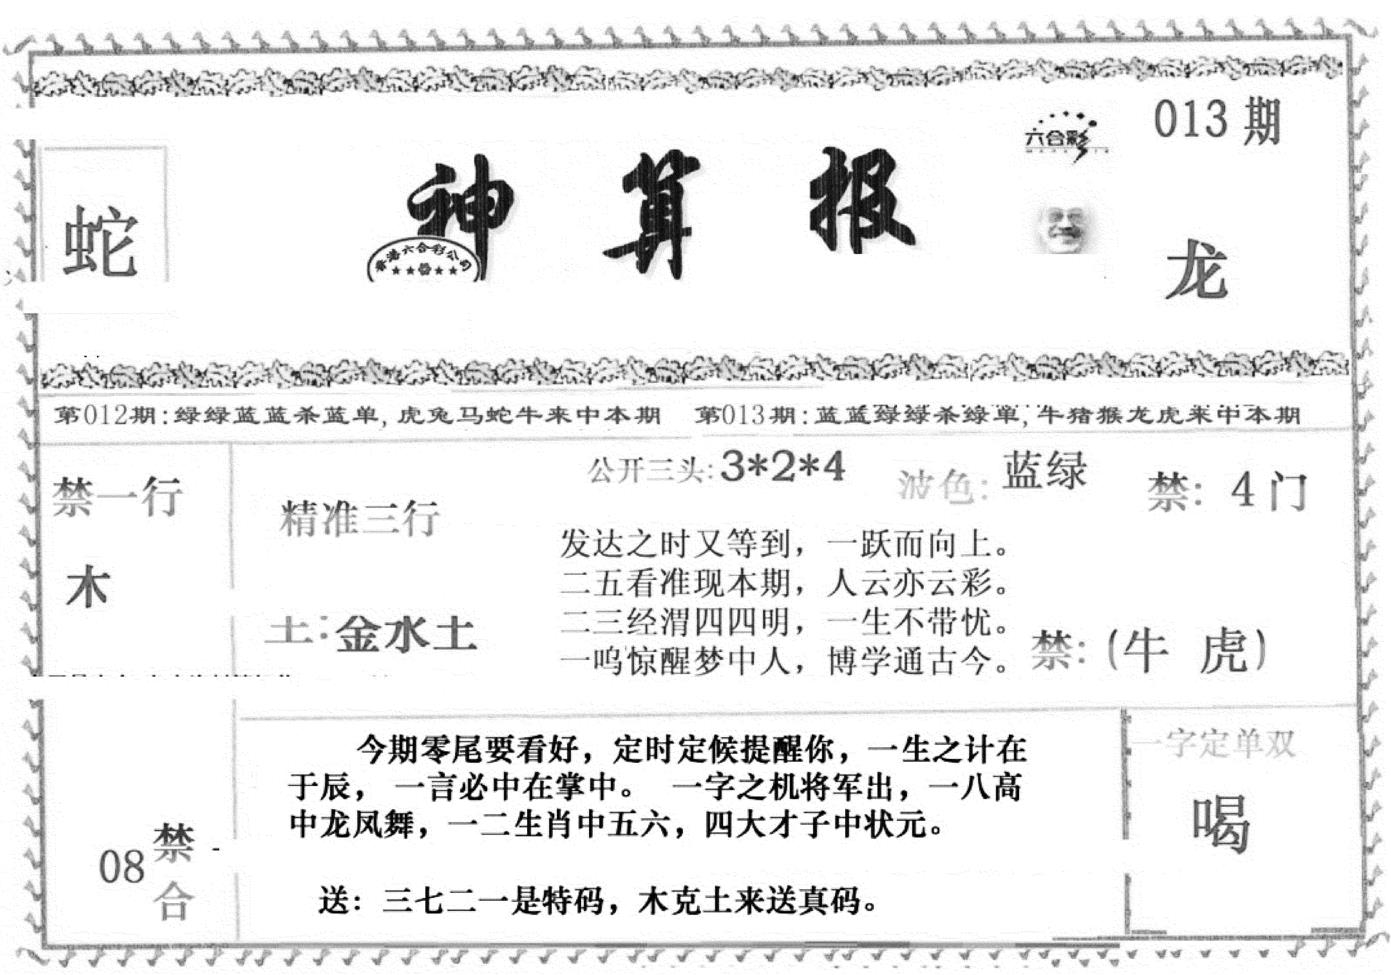 013期
六合彩
蛇
神算报
香港六合彩公司
龙
第012期:绿绿蓝蓝杀蓝单,虎兔马蛇牛来中本期 第013期:蓝蓝绿绿杀绿单,牛猪猴龙虎来中本期
禁一行
木
精准三行
土:金水土
公开三头:3*2*4 波色:蓝绿 禁:4门
发达之时又等到，一跃而向上。
二五看准现本期，人云亦云彩。
二三经渭四四明，一生不带忧。
一鸣惊醒梦中人，博学通古今。
禁:(牛 虎)
08禁合
今期零尾要看好，定时定候提醒你，一生之计在
于辰，一言必中在掌中。 一字之机将军出，一八高
中龙凤舞，一二生肖中五六，四大才子中状元。
送：三七二一是特码，木克土来送真码。
一字定单双
喝